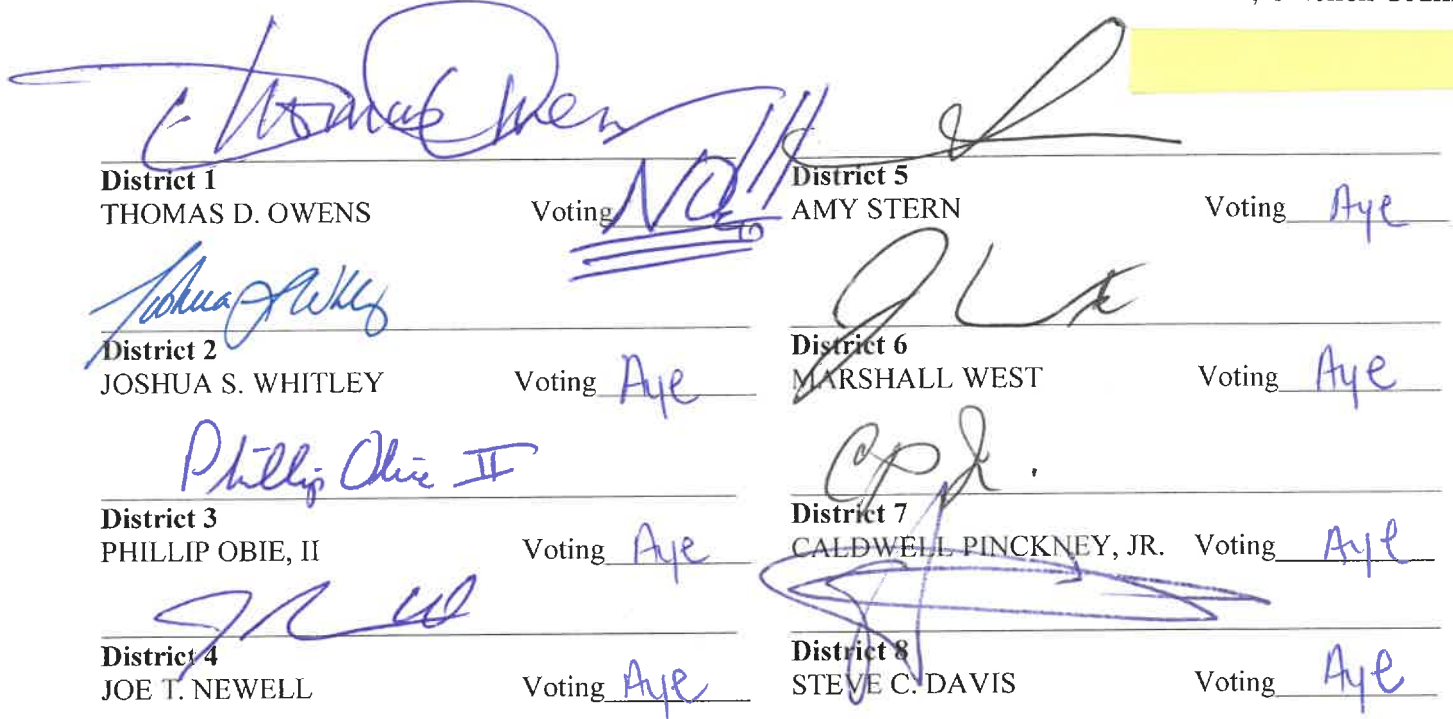 Thomas Owens
District 1
THOMAS D. OWENS Voting NO!!
Joshua S Whitley
District 2
JOSHUA S. WHITLEY Voting Aye
Phillip Obie II
District 3
PHILLIP OBIE, II Voting Aye
District 4
JOE T. NEWELL Voting Aye
District 5
AMY STERN Voting Aye
District 6
MARSHALL WEST Voting Aye
CPJr.
District 7
CALDWELL PINCKNEY, JR. Voting Aye
District 8
STEVE C. DAVIS Voting Aye